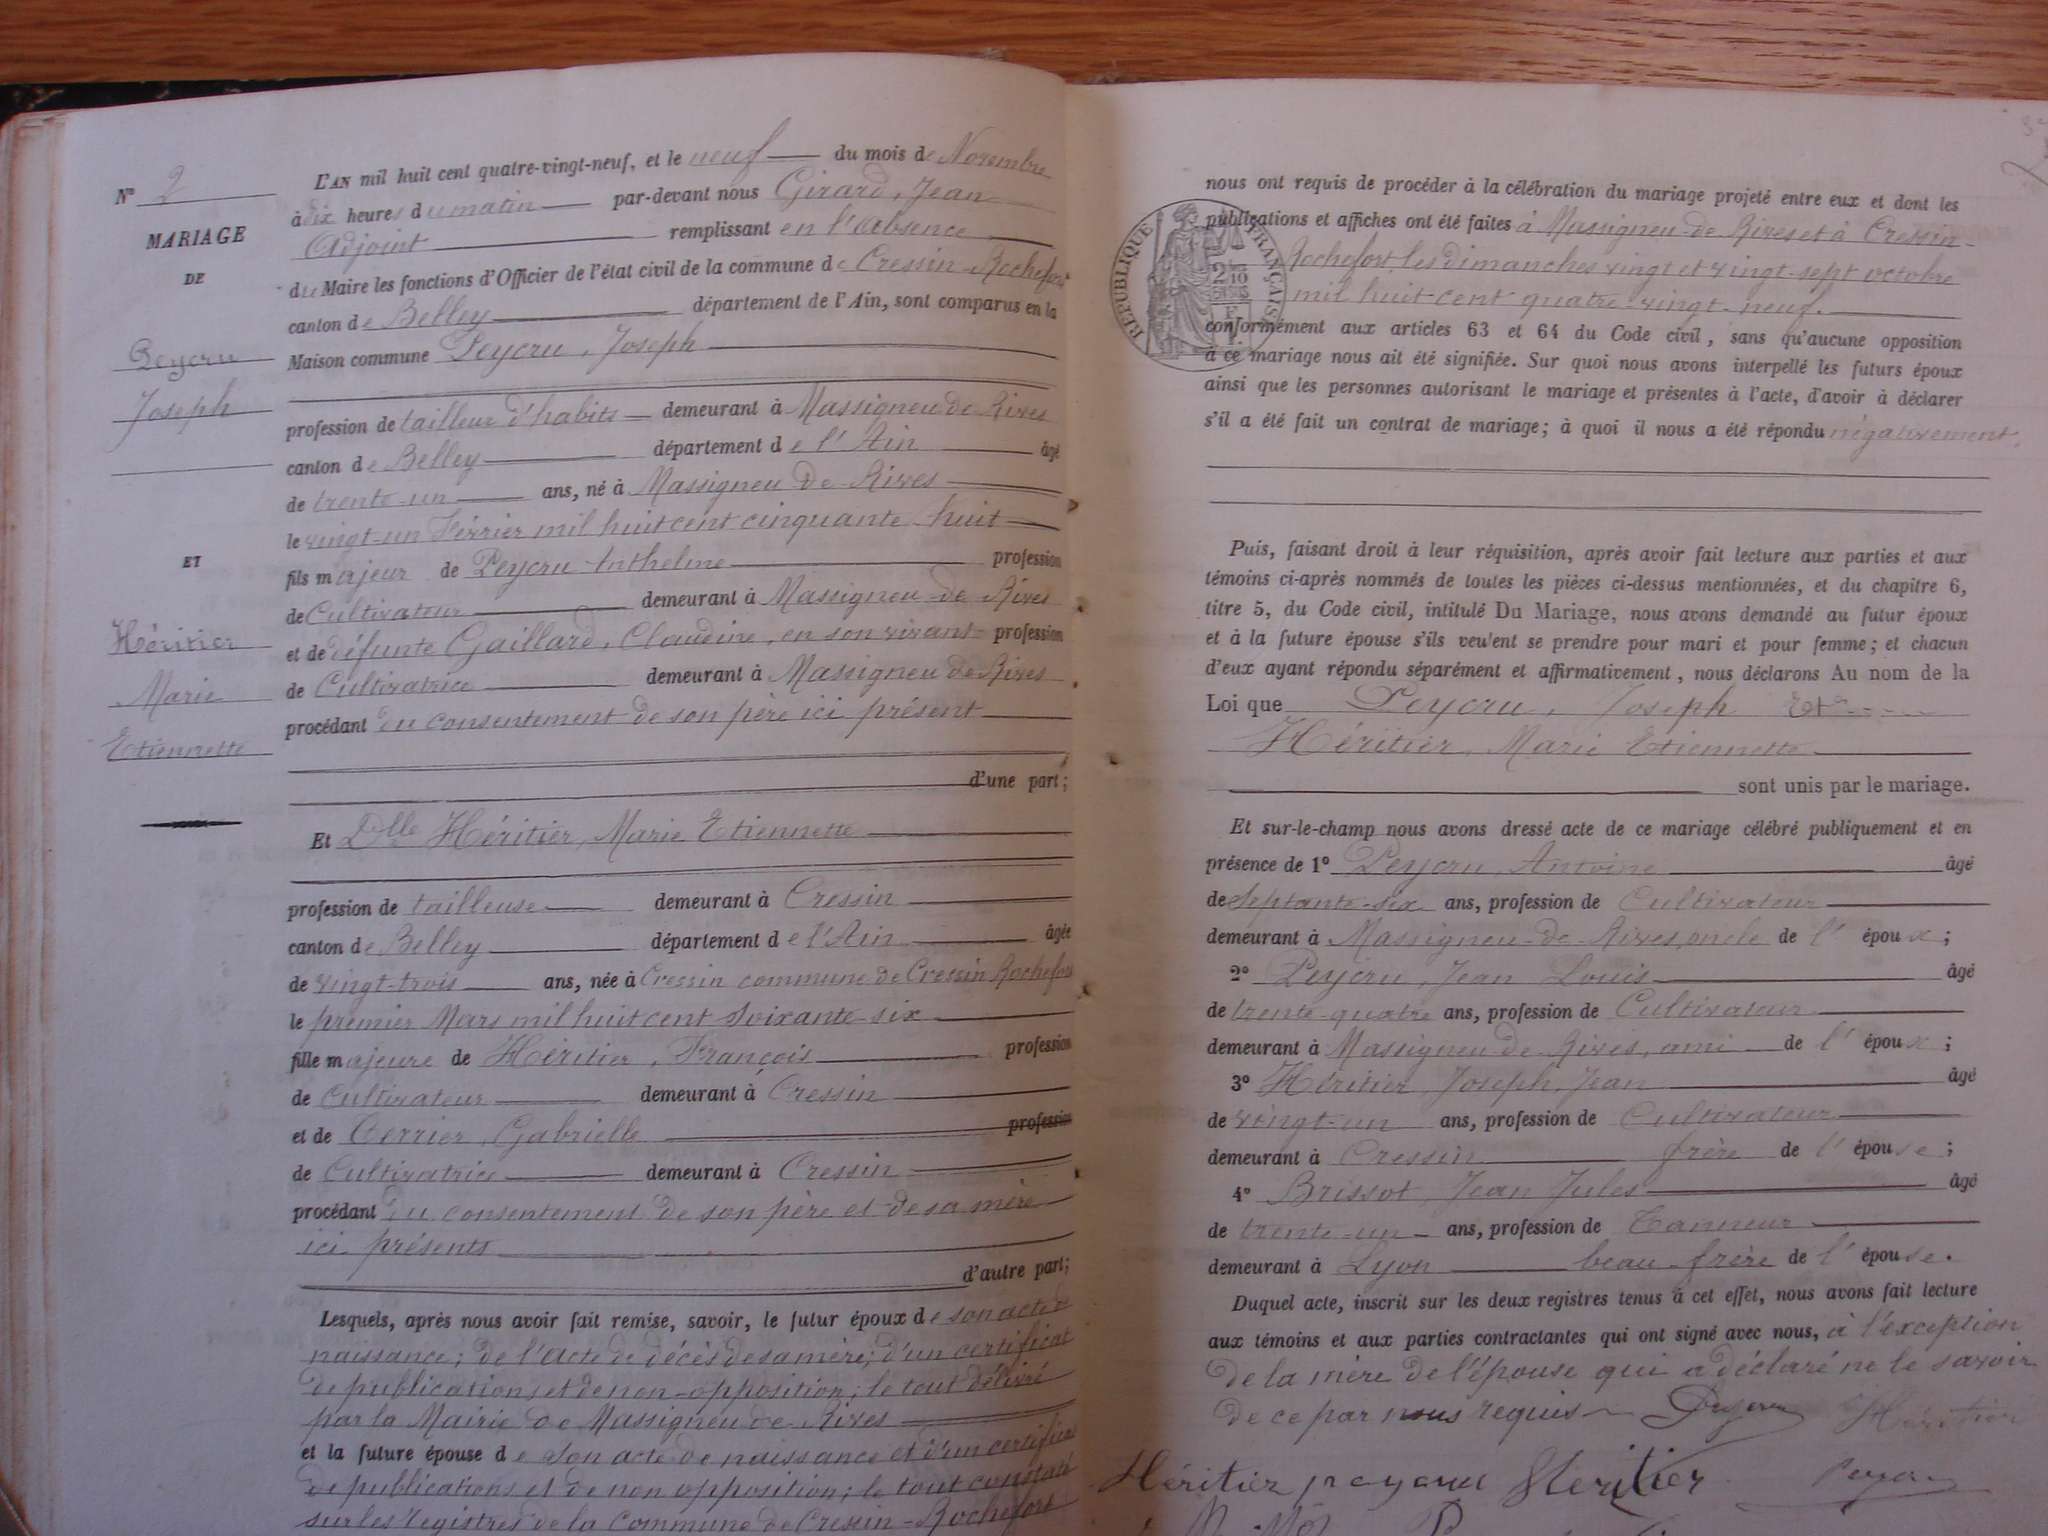 N° 2
MARIAGE
DE
Peycru
Joseph
ET
Héritier
Marie
Etiennette
L'AN mil huit cent quatre-vingt-neuf, et le neuf du mois de Novembre
à dix heures du matin par-devant nous Girard, Jean
Adjoint remplissant en l'absence
du Maire les fonctions d'Officier de l'état civil de la commune de Cressin-Rochefort
canton de Belley département de l'Ain, sont comparus en la
Maison commune Peycru, Joseph
profession de tailleur d'habits demeurant à Massigneu de Rives
canton de Belley département de l'Ain âgé
de trente-un ans, né à Massigneu-de-Rives
le vingt-un Février mil huit cent cinquante huit
fils majeur de Peycru Anthelme profession
de Cultivateur demeurant à Massigneu-de Rives
et de défunte Gaillard, Claudine, en son vivant profession
de Cultivatrice demeurant à Massigneu de Rives
procédant du consentement de son père ici présent
d'une part;
Et Dlle Héritier, Marie Etiennette
profession de tailleuse demeurant à Cressin
canton de Belley département de l'Ain âgée
de vingt-trois ans, née à Cressin commune de Cressin Rochefort
le premier Mars mil huit cent Soixante-six
fille majeure de Héritier, François profession
de Cultivateur demeurant à Cressin
et de Terrier, Gabrielle profession
de Cultivatrice demeurant à Cressin
procédant du consentement de son père et de sa mère
ici présents
d'autre part;
Lesquels, après nous avoir fait remise, savoir, le futur époux de son acte de
naissance; de l'acte de décès de sa mère; d'un certificat
de publications et de non-opposition; le tout délivré
par la Mairie de Massigneu de Rives
et la future épouse de son acte de naissance et d'un certificat
de publications et de non opposition; le tout constaté
sur les registres de la Commune de Cressin-Rochefort
nous ont requis de procéder à la célébration du mariage projeté entre eux et dont les
publications et affiches ont été faites à Massigneu-de Rives et à Cressin-
Rochefort, les dimanches vingt et vingt-sept octobre
mil huit cent quatre-vingt-neuf.
RÉPUBLIQUE FRANÇAISE
2/10
conformément aux articles 63 et 64 du Code civil, sans qu'aucune opposition
à ce mariage nous ait été signifiée. Sur quoi nous avons interpellé les futurs époux
ainsi que les personnes autorisant le mariage et présentes à l'acte, d'avoir à déclarer
s'il a été fait un contrat de mariage; à quoi il nous a été répondu négativement.
Puis, faisant droit à leur réquisition, après avoir fait lecture aux parties et aux
témoins ci-après nommés de toutes les pièces ci-dessus mentionnées, et du chapitre 6,
titre 5, du Code civil, intitulé Du Mariage, nous avons demandé au futur époux
et à la future épouse s'ils veulent se prendre pour mari et pour femme; et chacun
d'eux ayant répondu séparément et affirmativement, nous déclarons Au nom de la
Loi que Peycru, Joseph Et
Héritier, Marie Etiennette
sont unis par le mariage.
Et sur-le-champ nous avons dressé acte de ce mariage célébré publiquement et en
présence de 1° Peycru, Antoine âgé
de Septante-six ans, profession de Cultivateur
demeurant à Massigneu-de-Rives, oncle de l'époux;
2° Peycru, Jean Louis âgé
de trente-quatre ans, profession de Cultivateur
demeurant à Massigneu de Rives, ami de l'époux;
3° Héritier, Joseph, Jean âgé
de vingt-un ans, profession de Cultivateur
demeurant à Cressin frère de l'épouse;
4° Brissot, Jean Jules âgé
de trente-un ans, profession de Tanneur
demeurant à Lyon beau-frère de l'épouse.
Duquel acte, inscrit sur les deux registres tenus à cet effet, nous avons fait lecture
aux témoins et aux parties contractantes qui ont signé avec nous, à l'exception
de la mère de l'épouse qui a déclaré ne le savoir
de ce par nous requis Peycru Héritier
Héritier peycru Heritier Peycru